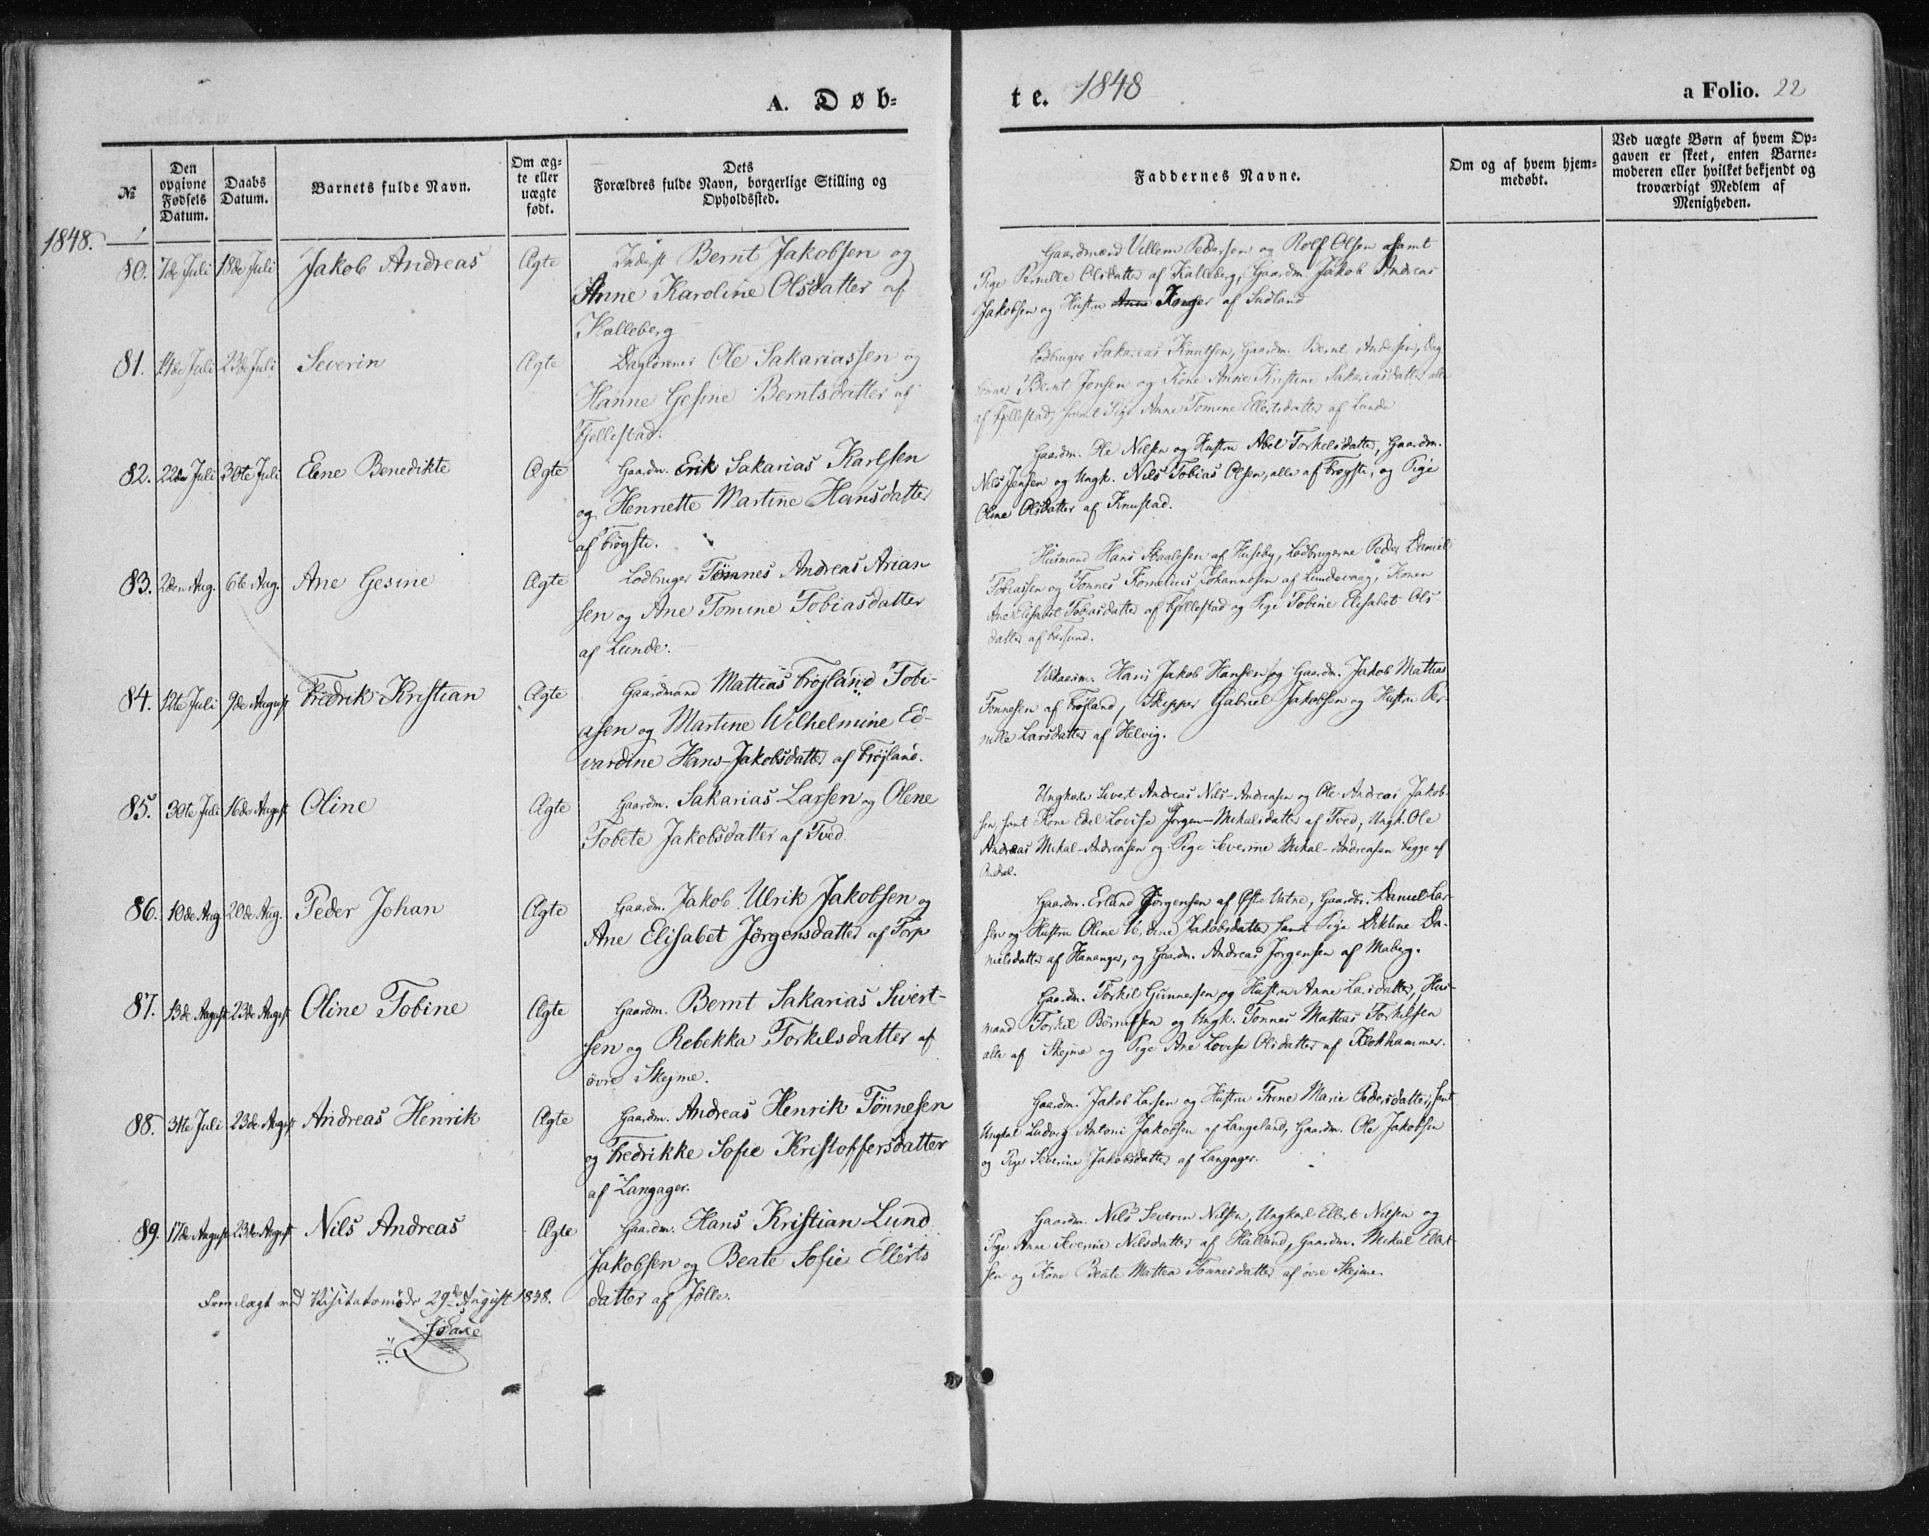 A. Døb-
te. 1848
a Folio. 22
№
Den opgivne Fødsels Datum.
Daabs Datum.
Barnets fulde Navn.
Om ægte eller uægte født.
Dets
Forældres fulde Navn, borgerlige Stilling og
Opholdssted.
Faddernes Navne.
Om og af hvem hjemmedøbt.
Ved uægte Børn af hvem Opgaven er skeet, enten Barnemoderen eller hvilket bekjendt og troværdigt Medlem af Menigheden.
1848.
80. 7de Juli 18de Juli Jakob Andreas Ægte Inderst Bernt Jakobsen og
Anne Karoline Olsdatter af
Kalleberg
Gaardmænd Villem Pedersen og Rolf Olsen samt
Pige Pernille Olsdatter af Kalleberg, Gaardm. Jakob Andreas
Jakobsen og Hustru Anne Inger af Sudland
81. 14de Juli 23de Juli Severin Ægte Daglønner Ole Sakariassen og
Hanne Gesine Berntsdatter af
Fjellestad.
Lodbruger Sakarias Knutsen, Gaardm. Bernt Andersen, Dag
lønner Bernt Jensen og Kone Anne Kristine Sakariasdatter alle
af Fjellestad, samt Pige Anne Tomine Ellertsdatter af Lunde
82. 22de Juli 30te Juli Elene Benedikte Ægte Gaardm. Erik Sakarias Karlsen
og Henriette Martine Hansdatter
af Frøyste.
Gaardm. Ole Nilsen og Hustru Abel Torkelsdatter, Gaardm.
Nils Jensen og Ungk. Nils Tobias Olsen, alle af Frøyste, og Pige
Oline Olsdatter af Knustad.
83. 2den Aug. 6te Aug. Ane Gesine Ægte Lodbruger Tønnes Andreas Arian
sen og Ane Tomine Tobiasdatter
af Lunde.
Husmand Hans Staalesen af Huseby, Lodbrugerne Peder Daniel
Tobiassen og Tønnes Kornelius Johannesen af Lundevaag, Konen
Ane Elisabet Tobiasdatter af Fjellestad og Pige Tobine Elisabet Ols-
datter af Farsund.
84. 12te Juli 9de August Fredrik Kristian Ægte Gaardmand Mattias Frøjland Tobi-
asen og Martine Wilhelmine Ed-
vardine Hans-Jakobsdatter af Frøjland.
Hans Jakob Hansen og Gaardm. Jakob Mattias
Tønnesen af Frøjland, Skipper Gabriel Jakobsen og Hustru Per-
nille Larsdatter af Helvig.
85. 30te Juli 16de August Oline Ægte Gaardm. Sakarias Larsen og Olene
Tobete Jakobsdatter af Tved
Ungkarl Sivert Andreas Nils-Andreasen og Ole Andreas Jakob-
sen samt Kone Edel Lovise Jørgen-Mikalsdatter af Tved, Ungk. Ole
Andreas Mikal-Andreasen og Pige Severine Mikal-Andreasen begge af
86. 10de Aug 20de Aug. Peder Johan Ægte Gaardm. Jakob Ulrik Jakobsen og
Ane Elisabet Jørgensdatter af Torp
Gaardm. Erland Jørgensen af Øste Vatne, Gaardbr. Daniel Lar-
sen og Hustru Oline Jakobsdatter samt Pige Diktine Da-
nielsdatter af Hananger, og Gaardm. Andreas Jørgensen af Maberg.
87. 13de August 23de August Oline Tobine Ægte Gaardm. Bernt Sakarias Sivert-
sen og Rebekka Torkelsdatter af
øvre Skejme.
Gaardm. Torkil Gunnesen og Hustru Anne Larsdatter, Hus-
mand Torkel Børnesen og Ungk. Tønnes Mattias Torkilsen
alle af Skejme og Pige Ane Lovise Olsdatter af Klokhammer.
88. 31te Juli 23de August Andreas Henrik Ægte Gaardm. Andreas Henrik Tønnesen
og Fredrikke Sofie Kristoffersdatter
af Langager.
Gaardm. Jakob Larsen og Hustru Trine Marie Pedersdatter, samt
Ungkal Ludvig Antoni Jakobsen af Langeland, Gaardm. Ole Jakobsen
og Pige Severine Jakobsdatter af Langager.
89. 17de August 23de August Nils Andreas Ægte Gaardm. Hans Kristian Lund
Jakobsen og Beate Sofie Ellerts
datter af Jølle.
Gaardm. Nils Severin Nilsen, Ungkal Ellert Nilsen og
Pige Anne Severine Nilsdatter af Halland, Gaardm. Mikal Ellert-
sen og Kone Beate Mattea Tønnesdatter af øvre Skejme.
Fremlagt ved Visitatsmøde 29de August 1848.